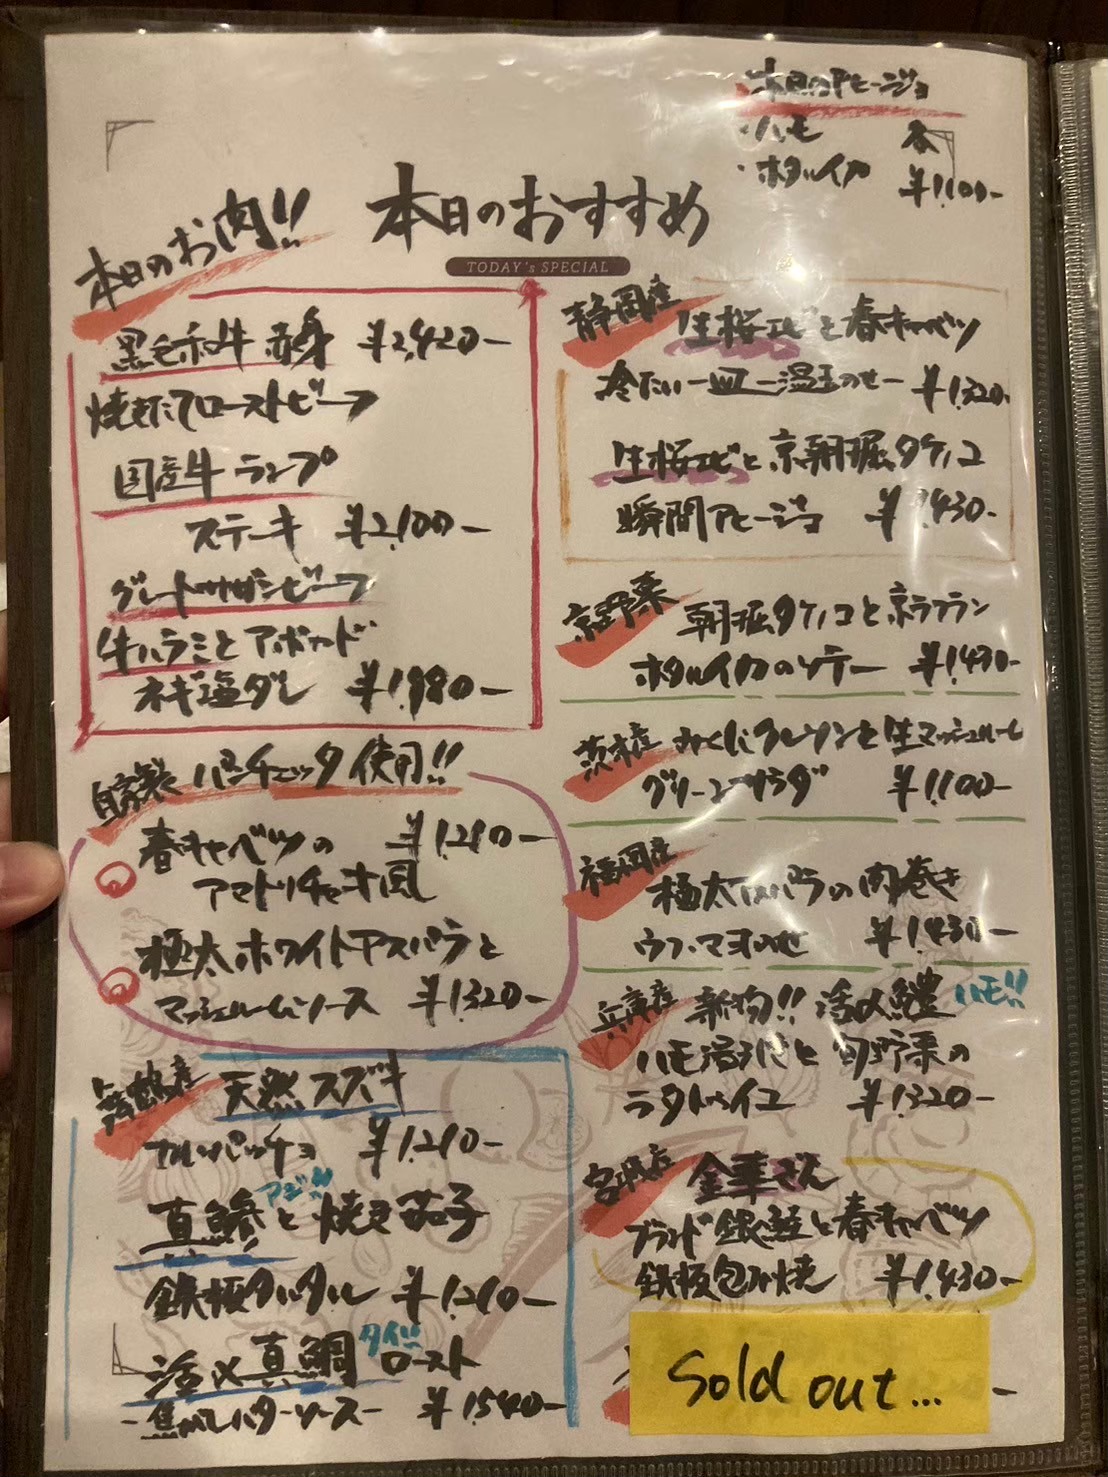 本日のアヒージョ
・ハモ 各
・ホタルイカ ¥1,100-
本日のおすすめ
TODAY's SPECIAL
本日のお肉!!
黒毛和牛 赤身 ¥2,420-
焼きたてローストビーフ
国産牛 ランプ
ステーキ ¥2,100-
グレートオマハビーフ
牛ハラミとアボカド
ネギ塩ダレ ¥1,980-
自家製 パンチェッタ使用!!
春キャベツの ¥1,210-
アマトリチャーナ風
極太ホワイトアスパラと
マッシュルームソース ¥1,320-
舞鶴産 天然スズキ
カルパッチョ ¥1,210-
アジ!!
真鯵と焼き茄子
鉄板タルタル ¥1,210-
タイ!!
活〆真鯛 ロースト
-焦がしバターソース- ¥1,540-
静岡産 生桜エビと春キャベツ
冷たい一皿 -温玉のせ- ¥1,320-
生桜エビと京朝堀タケノコ
瞬間アヒージョ ¥1,430-
京野菜 朝堀タケノコと京ラフラン
ホタルイカのソテー ¥1,430-
茨木産 クレソンと生マッシュルーム
グリーンサラダ ¥1,100-
福岡産 極太アスパラの肉巻き
ウフ・マヨのせ ¥1,430-
兵庫産 新物!! 活〆鱧 ハモ!!
ハモ湯引きと旬野菜の
ラタトゥイユ ¥1,320-
宮城産 金華ぎん
ブランド銀鮭と春キャベツ
鉄板包み焼 ¥1,430-
Sold out...